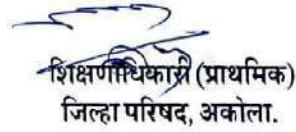 शिक्षणाधिकारी (प्राथमिक)
जिल्हा परिषद, अकोला.